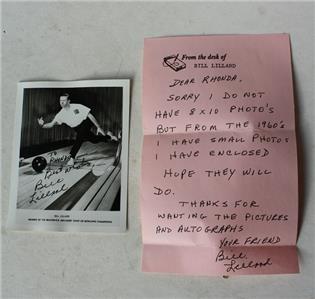 To
Rhonda
Best wishes
Bill
Lillard
BILL LILLARD
MEMBER OF THE BRUNSWICK ADVISORY STAFF OF BOWLING CHAMPIONS
From the desk of
BILL LILLARD
DEAR RHONDA.
SORRY I DO NOT
HAVE 8X10 PHOTO'S
BUT FROM THE 1960'S
I HAVE SMALL PHOTOS
I HAVE ENCLOSED
HOPE THEY WILL
DO.
THANKS FOR
WANTING THE PICTURES
AND AUTOGRAPHS
YOUR FRIEND
Bill
Lillard